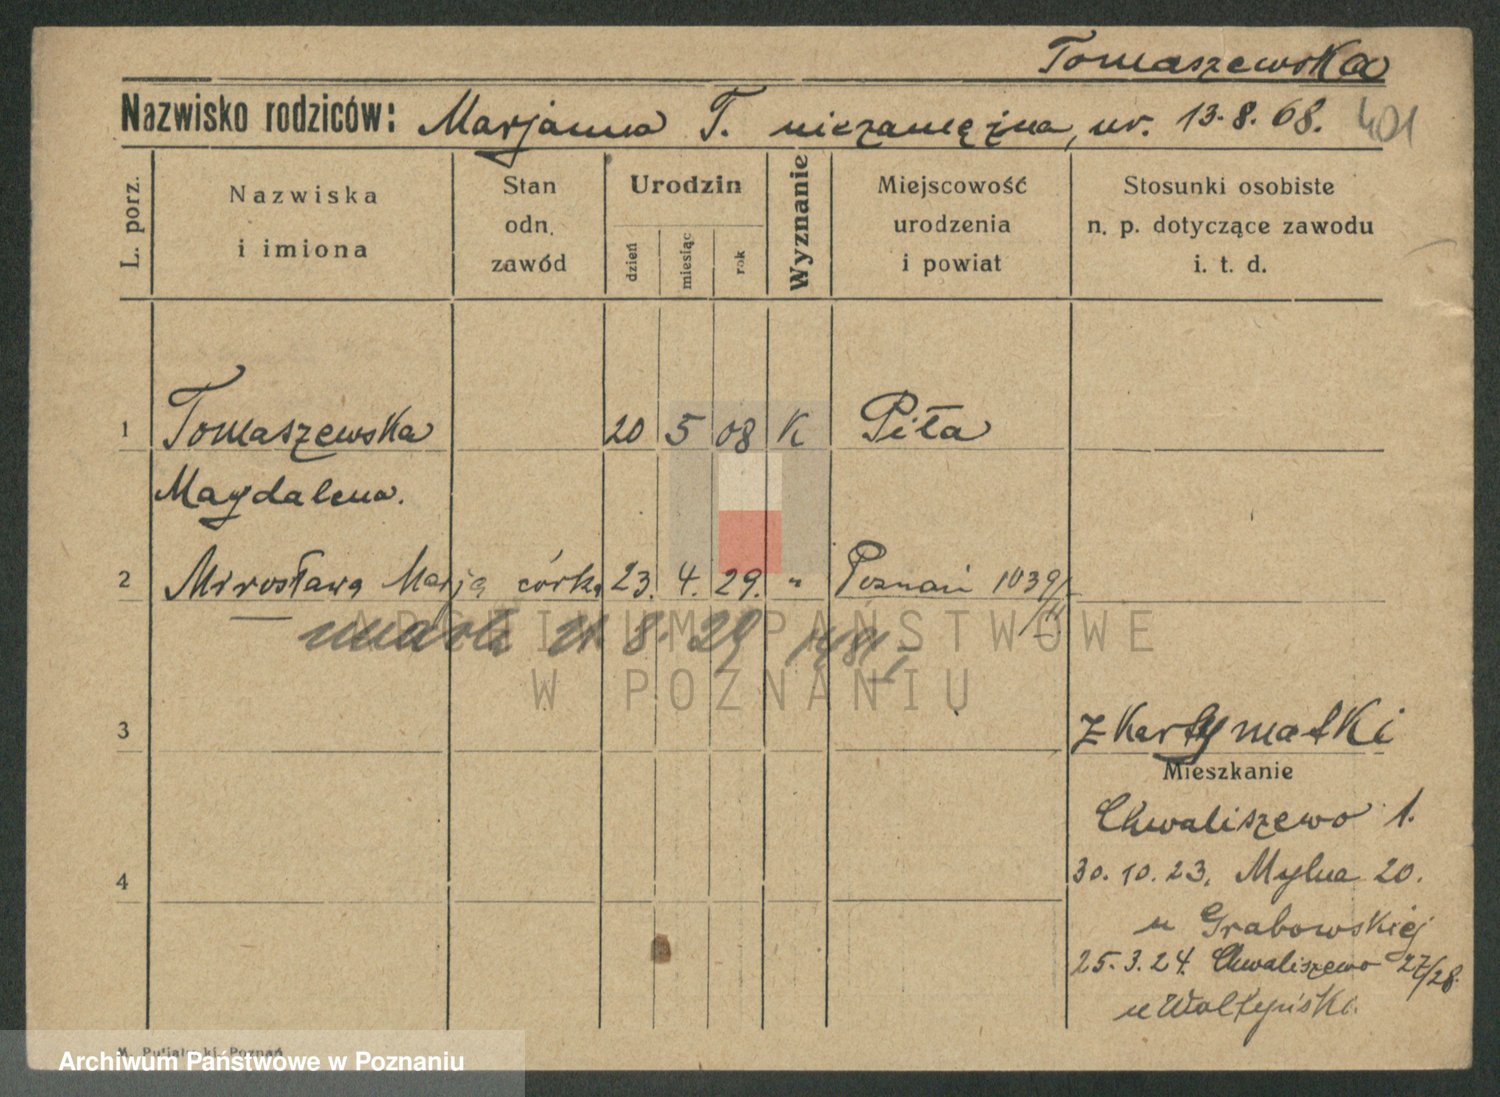 Tomaszewska
Nazwisko rodziców: Marjanna T. niezamężna, ur. 13.8.68. 401
L. porz.
Nazwiska
i imiona
Stan
odn.
zawód
Urodzin
dzień
miesiąc
rok
Wyznanie
Miejscowość
urodzenia
i powiat
Stosunki osobiste
n. p. dotyczące zawodu
i. t. d.
1 Tomaszewska 20 5 08 K Piła
Magdalena.
2 Mirosława Marja córka 23. 4. 29. " Poznań 1039/II
zmarła 8. 29
ARCHIWUM PAŃSTWOWE
W POZNANIU
3
z karty matki
Mieszkanie
Chwaliszewo 1.
4
30.10.23. Mylna 20.
u Grabowskiej
25.3.24. Chwaliszewo 27/28.
u
Poznań
Archiwum Państwowe w Poznaniu